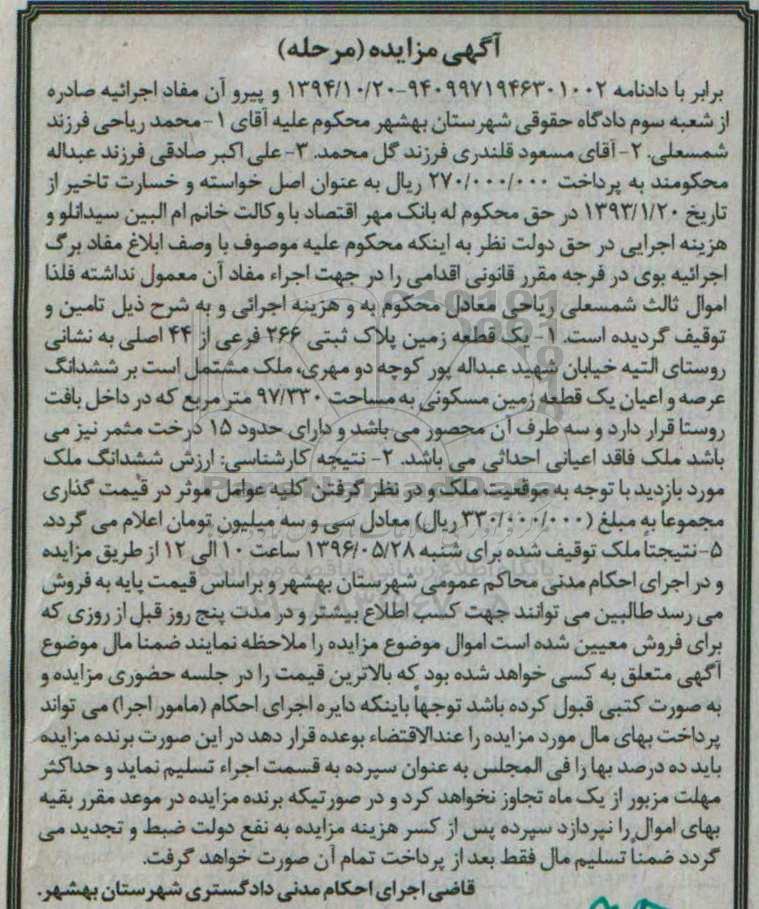 آگهی مزایده (مرحله)
برابر با دادنامه ۹۴۰۹۹۷۱۹۴۶۳۰۱۰۰۲-۱۳۹۴/۱۰/۲۰ و پیرو آن مفاد اجرائیه صادره
از شعبه سوم دادگاه حقوقی شهرستان بهشهر محکوم علیه آقای ۱- محمد ریاحی فرزند
شمسعلی. ۲- آقای مسعود قلندری فرزند گل محمد. ۳- علی اکبر صادقی فرزند عبداله
محکومند به پرداخت ۲۷۰/۰۰۰/۰۰۰ ریال به عنوان اصل خواسته و خسارت تاخیر از
تاریخ ۱۳۹۳/۱/۲۰ در حق محکوم له بانک مهر اقتصاد با وکالت خانم ام البین سیدانلو و
هزینه اجرایی در حق دولت نظر به اینکه محکوم علیه موصوف با وصف ابلاغ مفاد برگ
اجرائیه بوی در فرجه مقرر قانونی اقدامی را در جهت اجراء مفاد آن معمول نداشته فلذا
اموال ثالث شمسعلی ریاحی معادل محکوم به و هزینه اجرائی و به شرح ذیل تامین و
توقیف گردیده است. ۱- یک قطعه زمین پلاک ثبتی ۲۶۶ فرعی از ۴۴ اصلی به نشانی
روستای التیه خیابان شهید عبداله پور کوچه دو مهری، ملک مشتمل است بر ششدانگ
عرصه و اعیان یک قطعه زمین مسکونی به مساحت ۹۷/۳۳۰ متر مربع که در داخل بافت
روستا قرار دارد و سه طرف آن محصور می باشد و دارای حدود ۱۵ درخت مثمر نیز می
باشد ملک فاقد اعیانی احداثی می باشد. ۲- نتیجه کارشناسی: ارزش ششدانگ ملک
مورد بازدید با توجه به موقعیت ملک و در نظر گرفتن کلیه عوامل موثر در قیمت گذاری
مجموعا به مبلغ (۳۳۰/۰۰۰/۰۰۰ ریال) معادل سی و سه میلیون تومان اعلام می گردد.
۵- نتیجتاً ملک توقیف شده برای شنبه ۱۳۹۶/۰۵/۲۸ ساعت ۱۰ الی ۱۲ از طریق مزایده
و در اجرای احکام مدنی محاکم عمومی شهرستان بهشهر و براساس قیمت پایه به فروش
می رسد طالبین می توانند جهت کسب اطلاع بیشتر و در مدت پنج روز قبل از روزی که
برای فروش معیین شده است اموال موضوع مزایده را ملاحظه نمایند ضمنا مال موضوع
آگهی متعلق به کسی خواهد شده بود که بالاترین قیمت را در جلسه حضوری مزایده و
به صورت کتبی قبول کرده باشد توجهاً باینکه دایره اجرای احکام (مامور اجرا) می تواند
پرداخت بهای مال مورد مزایده را عندالاقتضاء بوعده قرار دهد در این صورت برنده مزایده
باید ده درصد بها را فی المجلس به عنوان سپرده به قسمت اجراء تسلیم نماید و حداکثر
مهلت مزبور از یک ماه تجاوز نخواهد کرد و در صورتیکه برنده مزایده در موعد مقرر بقیه
بهای اموال را نپردازد سپرده پس از کسر هزینه مزایده به نفع دولت ضبط و تجدید می
گردد ضمناً تسلیم مال فقط بعد از پرداخت تمام آن صورت خواهد گرفت.
قاضی اجرای احکام مدنی دادگستری شهرستان بهشهر.